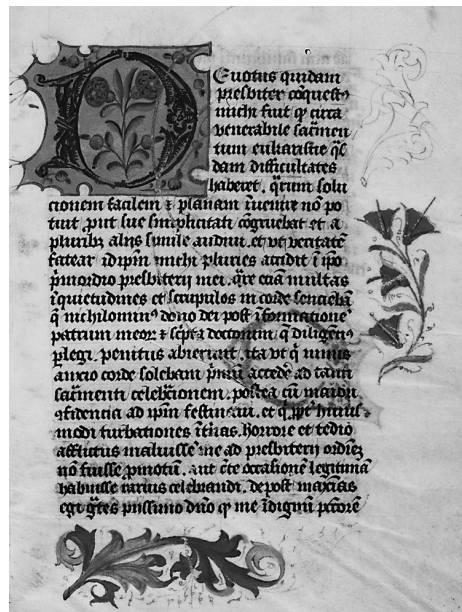 Devotus quidam
presbiter cōquestꝰ
michi fuit ꝙ circa
venerabile sacͬmen
tum eukaristie qͣs
dam difficultates
haberet. qͣrum solu
cionem facilem ⁊ planam īuenire nō po
tuit, put sue simplicitati cōgruebat et a
pluribꝰ aliis simile audiui. et vt veritatē
fatear idipm̄ michi pluries accidit ī ipo
pͥmordio presbiterij mei. qͣre eciā multas
īquietudines et scrupulos in corde sencieba͞
qͥ nichilominꝰ dono dei post īformatione͞
patrum meoꝝ ⁊ doctorum, qͥ diligenꝰ
ꝑlegi. penitus abierunt. ita vt qͥ nimis
anxio corde solebam pͥmū accedē ad tanti
sacͬmenti celebͣcionem. postea cū maiori
ꝯfidencia ad ipm̄ festinaui. et qͥ ꝓpt̄ huius
modi turbationes īt̄nas. horrore et tedio
afflictus maluissē me ad presbiterij ordīez
nō fuisse ꝓmotū. aut cͣte occasione͞ legitimā
habuisse rarius celebrandi. depost maxīas
egi gͣtes pijssimo dn̄o ꝙ me īdignū pctorē